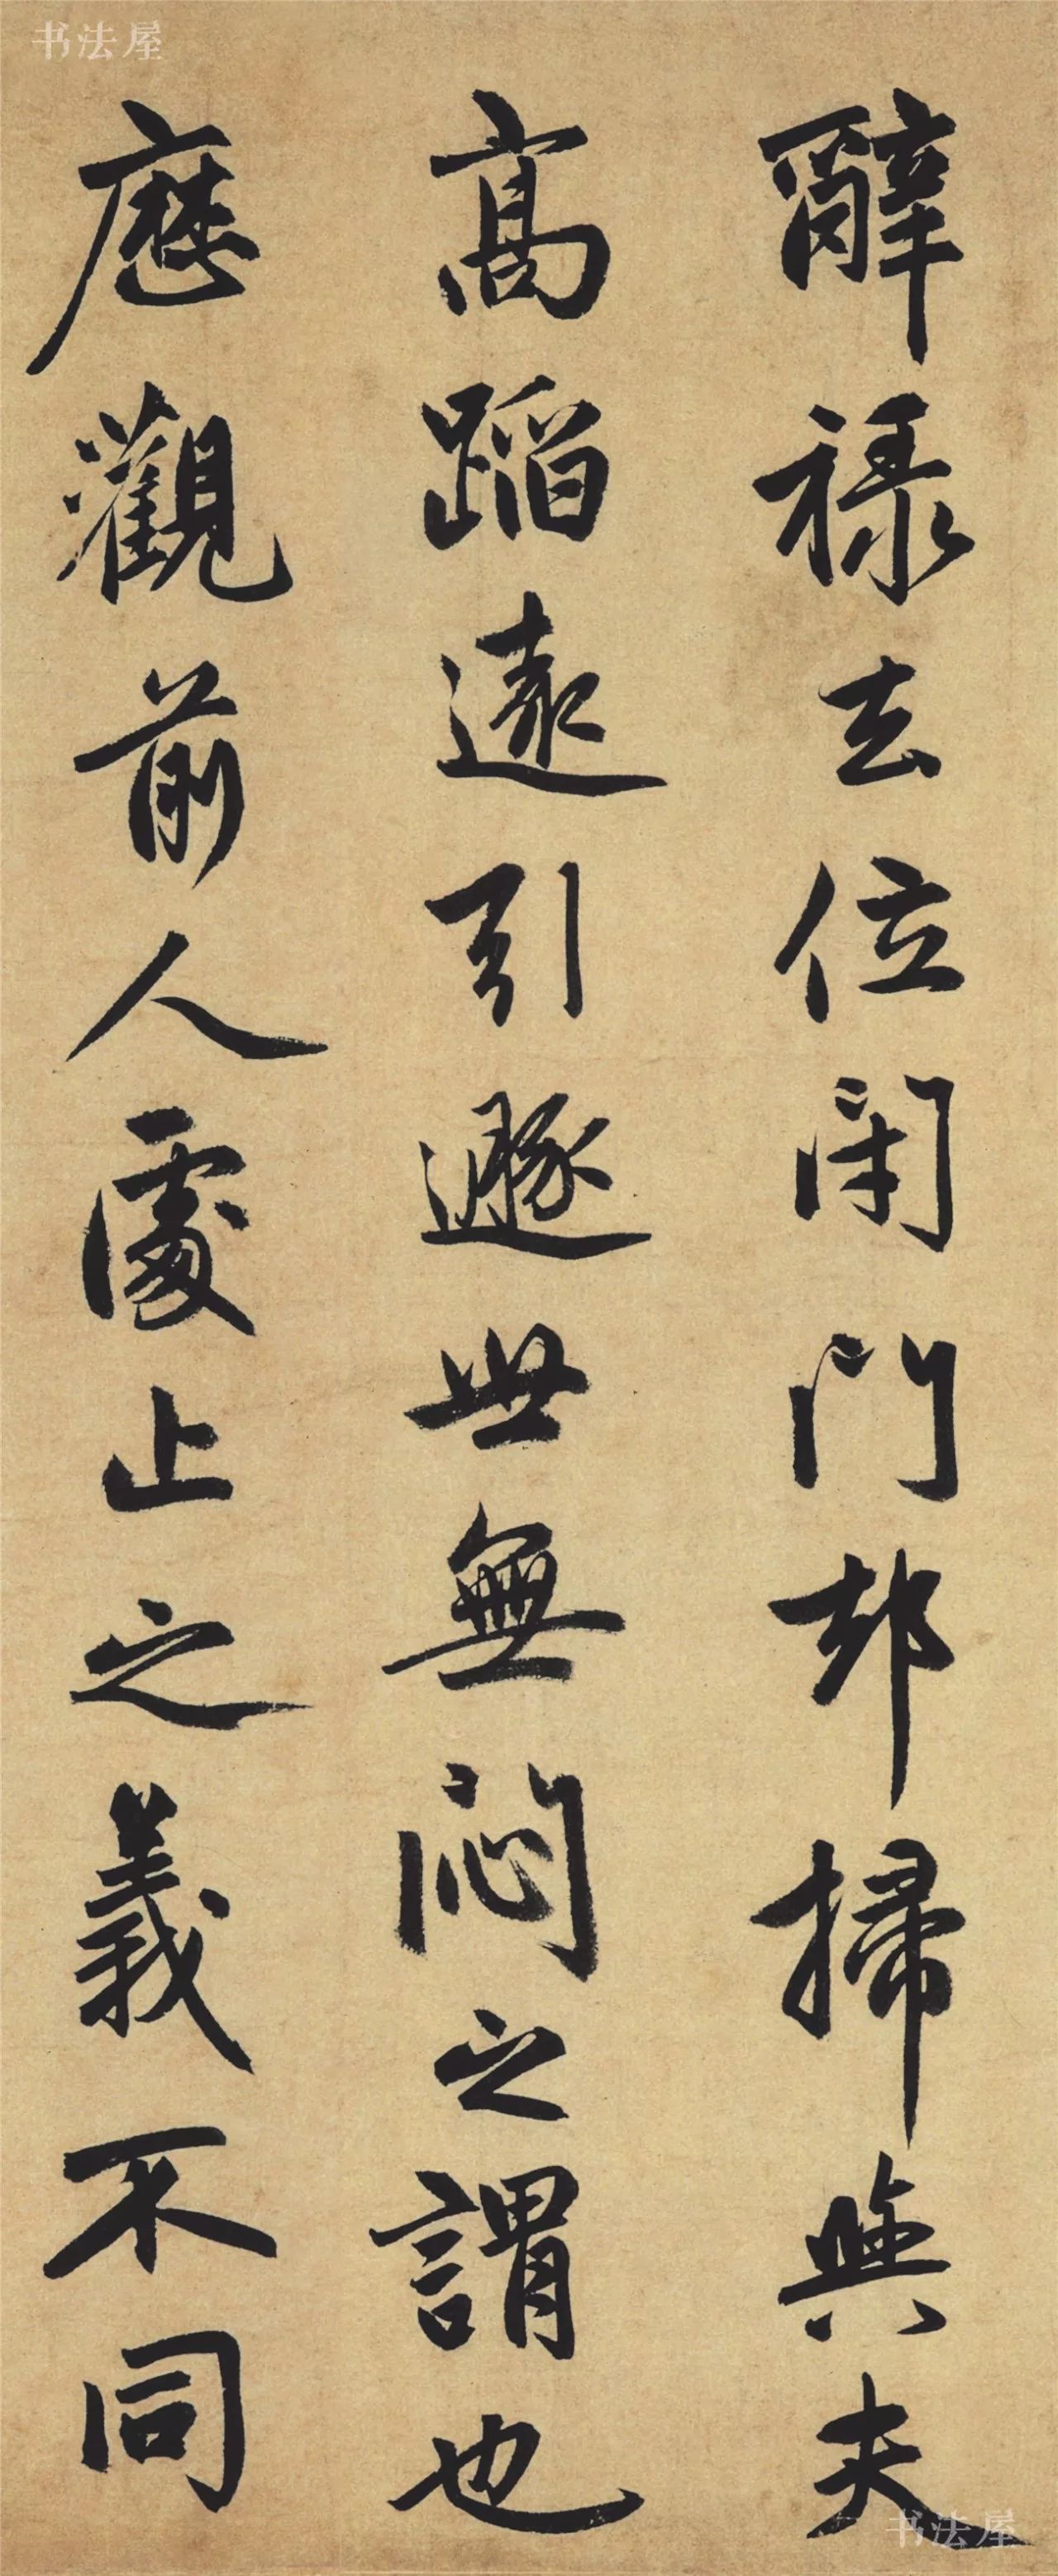 书法屋
辭禄去位閑門却掃與夫
高蹈遠引遯世無悶之謂也
歷觀前人處止之義不同
书法屋